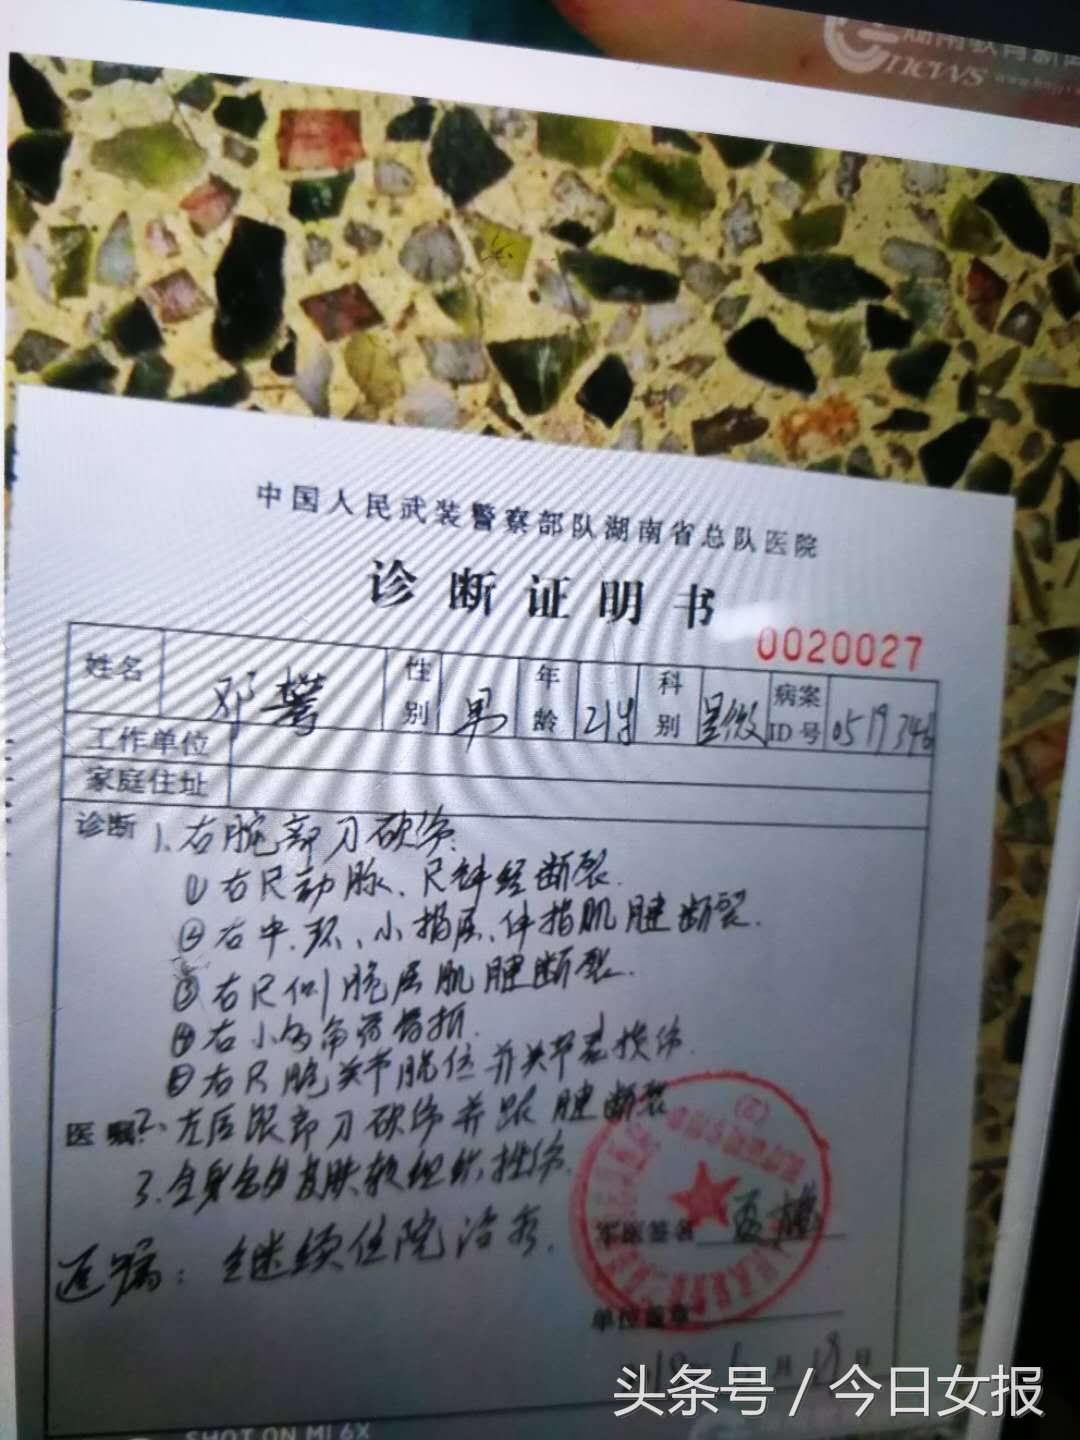 湖南教育新闻
news
中国人民武装警察部队湖南省总队医院
诊断证明书
0020027
姓名 邓鸶 性别 男 年龄 21岁 科别 显微 病案ID号 0519346
工作单位
家庭住址
诊断 1.右腕部刀砍伤.
①右尺动脉、尺神经断裂.
②右中.环、小指屈、伸指肌腱断裂.
③右尺侧腕屈肌腱断裂.
④右小多角骨骨折.
⑤右尺腕关节脱位并关节囊损伤.
2.左后跟部刀砍伤并跟腱断裂
医嘱:
3.全身多处皮肤软组织挫伤.
医嘱：继续住院治疗.
军医签名
单位盖章
月 日
头条号 / 今日女报
SHOT ON MI 6X